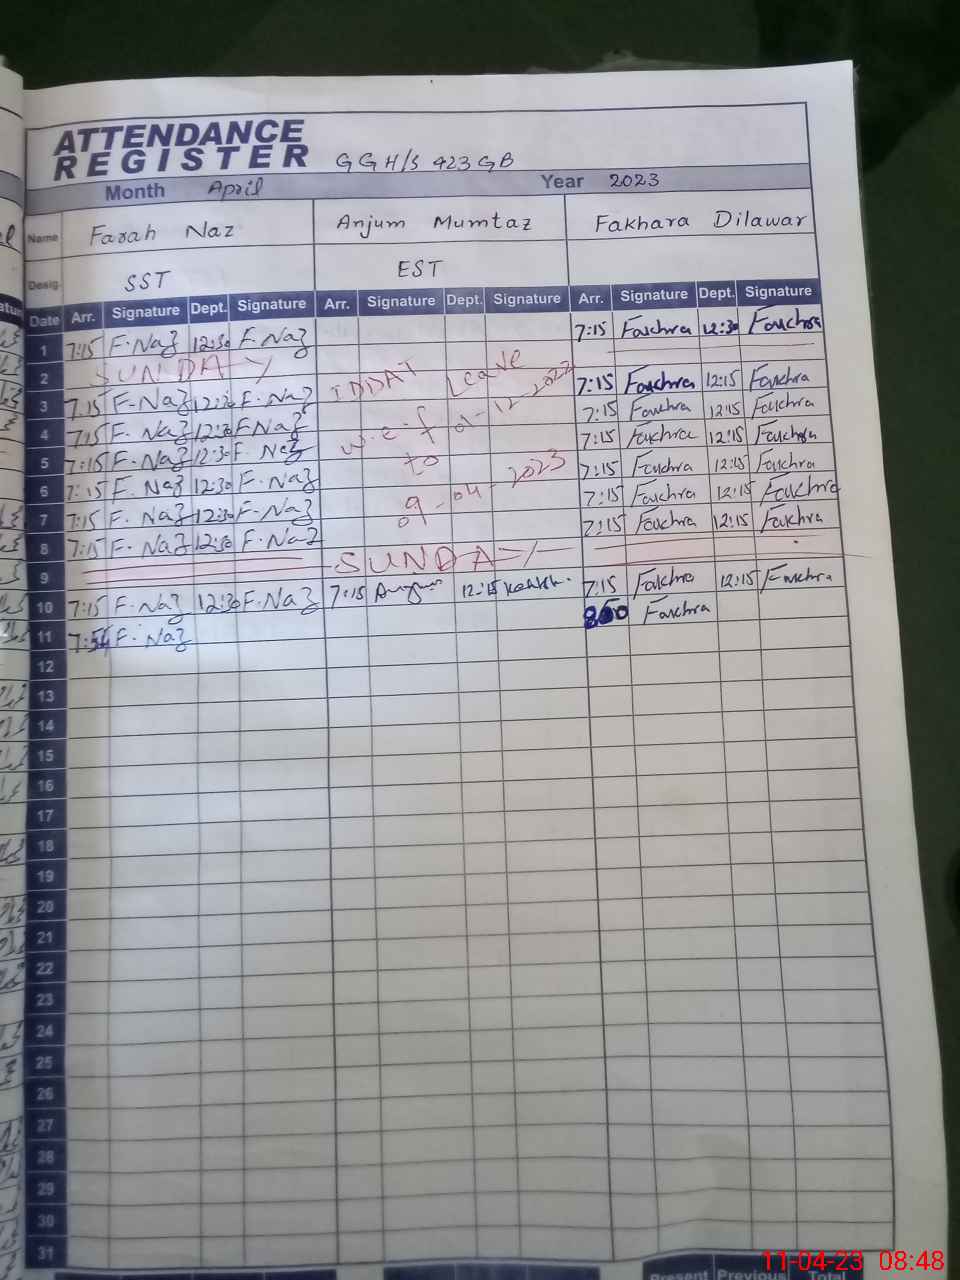 ATTENDANCE
REGISTER GGH/S 423 GB
Month April Year 2023
Name Farah Naz Anjum Mumtaz Fakhara Dilawar
Desig. SST EST
Date Arr. Signature Dept. Signature Arr. Signature Dept. Signature Arr. Signature Dept. Signature
1 7:15 F.Naz 12:30 F.Naz 7:15 Fakhra 12:30 Fakhra
2 SUNDAY
3 7:15 F.Naz F.Naz IDDAT Leave 7:15 Fakhra 12:15 Fakhra
4 7:15 F.Naz 12:30 F.Naz w.e.f 01-12-2022 7:15 Fakhra 12:15 Fakhra
5 7:15 F.Naz 12:30 F.Naz to 7:15 Fakhra 12:15 Fakhra
6 7:15 F.Naz 12:30 F.Naz 09-04-2023 7:15 Fakhra 12:15 Fakhra
7 7:15 F.Naz 12:30 F.Naz 7:15 Fakhra 12:15 Fakhra
8 7:15 F.Naz 12:30 F.Naz 7:15 Fakhra 12:15 Fakhra
9 SUNDAY
10 7:15 F.Naz 12:30 F.Naz 7:15 12:15 7:15 Fakhra 12:15 Fakhra
11 7:54 F.Naz Fakhra
12
13
14
15
16
17
18
19
20
21
22
23
24
25
26
27
28
29
30
31
Present Previous Total
11-04-23 08:48